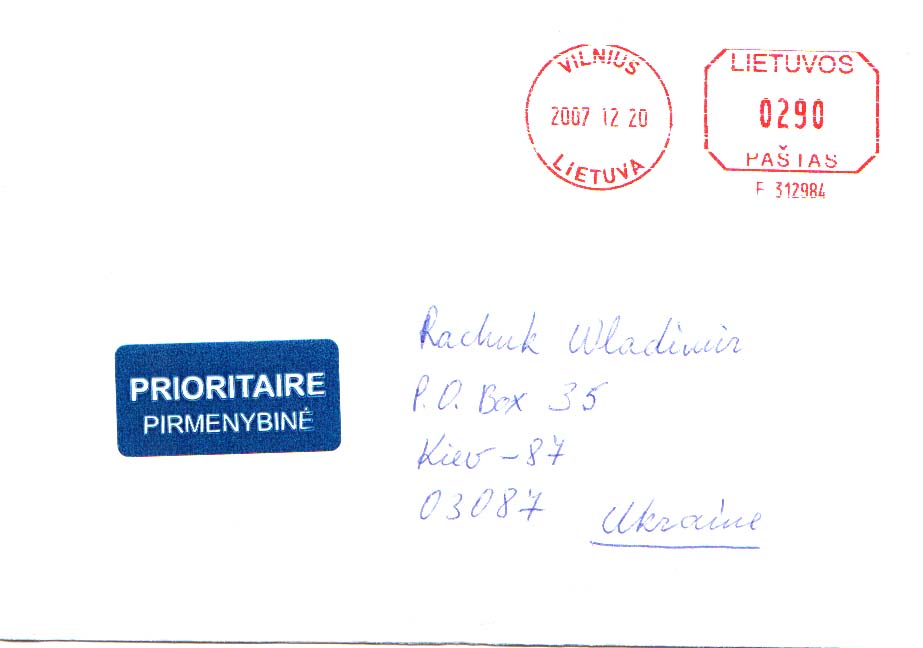 VILNIUS
2007 12 20
LIETUVA
LIETUVOS
0290
PAŠTAS
F 312984
PRIORITAIRE
PIRMENYBINĖ
Rachuk Wladimir
P.O. Box 35
Kiev - 87
03087
Ukraine